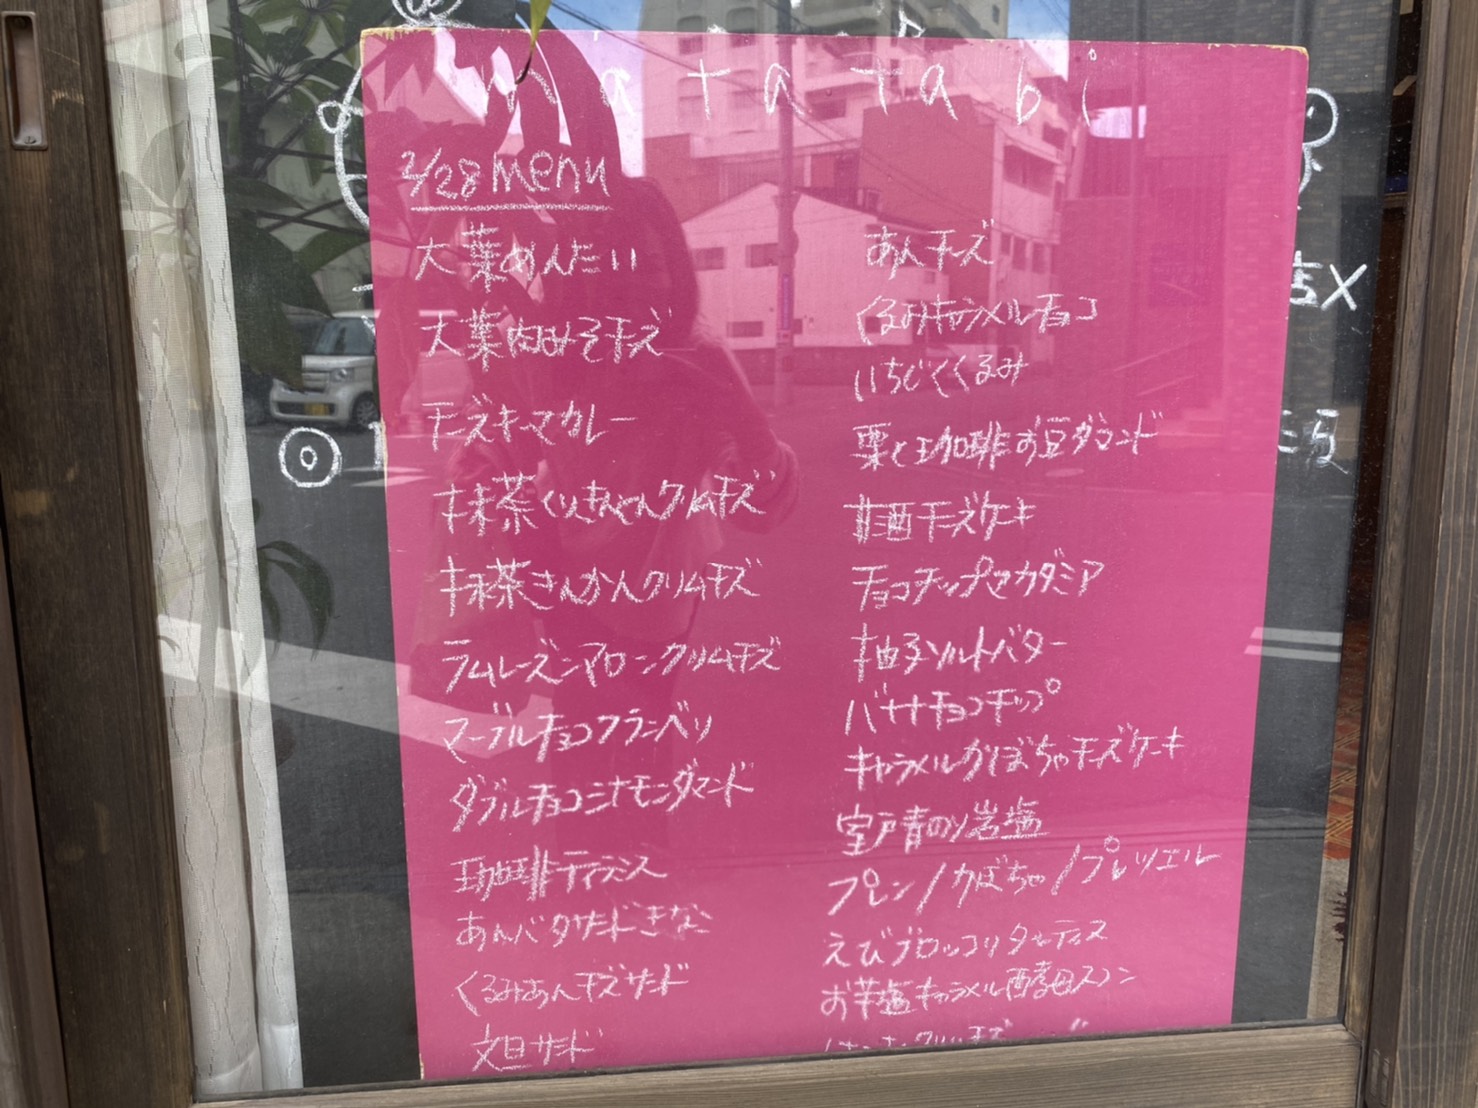 matatabi
2/28 menu
大葉めんたい
大葉肉みそチーズ
チーズキーマカレー
抹茶くりきんとんクリームチーズ
抹茶きんかんクリームチーズ
ラムレーズンマロンクリームチーズ
マーブルチョコクランベリー
ダブルチョコシナモンダマンド
珈琲ティラミス
あんバタサンドきなこ
くるみあんチーズサンド
文旦サンド
あんチーズ
くるみキャラメルチョコ
いちじくくるみ
栗と珈琲お豆ダマンド
甘酒チーズケーキ
チョコチップマカダミア
柚子ソルトバター
バナナチョコチップ
キャラメルかぼちゃチーズケーキ
室戸青のり岩塩
プレーン/かぼちゃ/プレッツエル
えびブロッコリタルティーヌ
お芋塩キャラメル酵母スコーン
店X